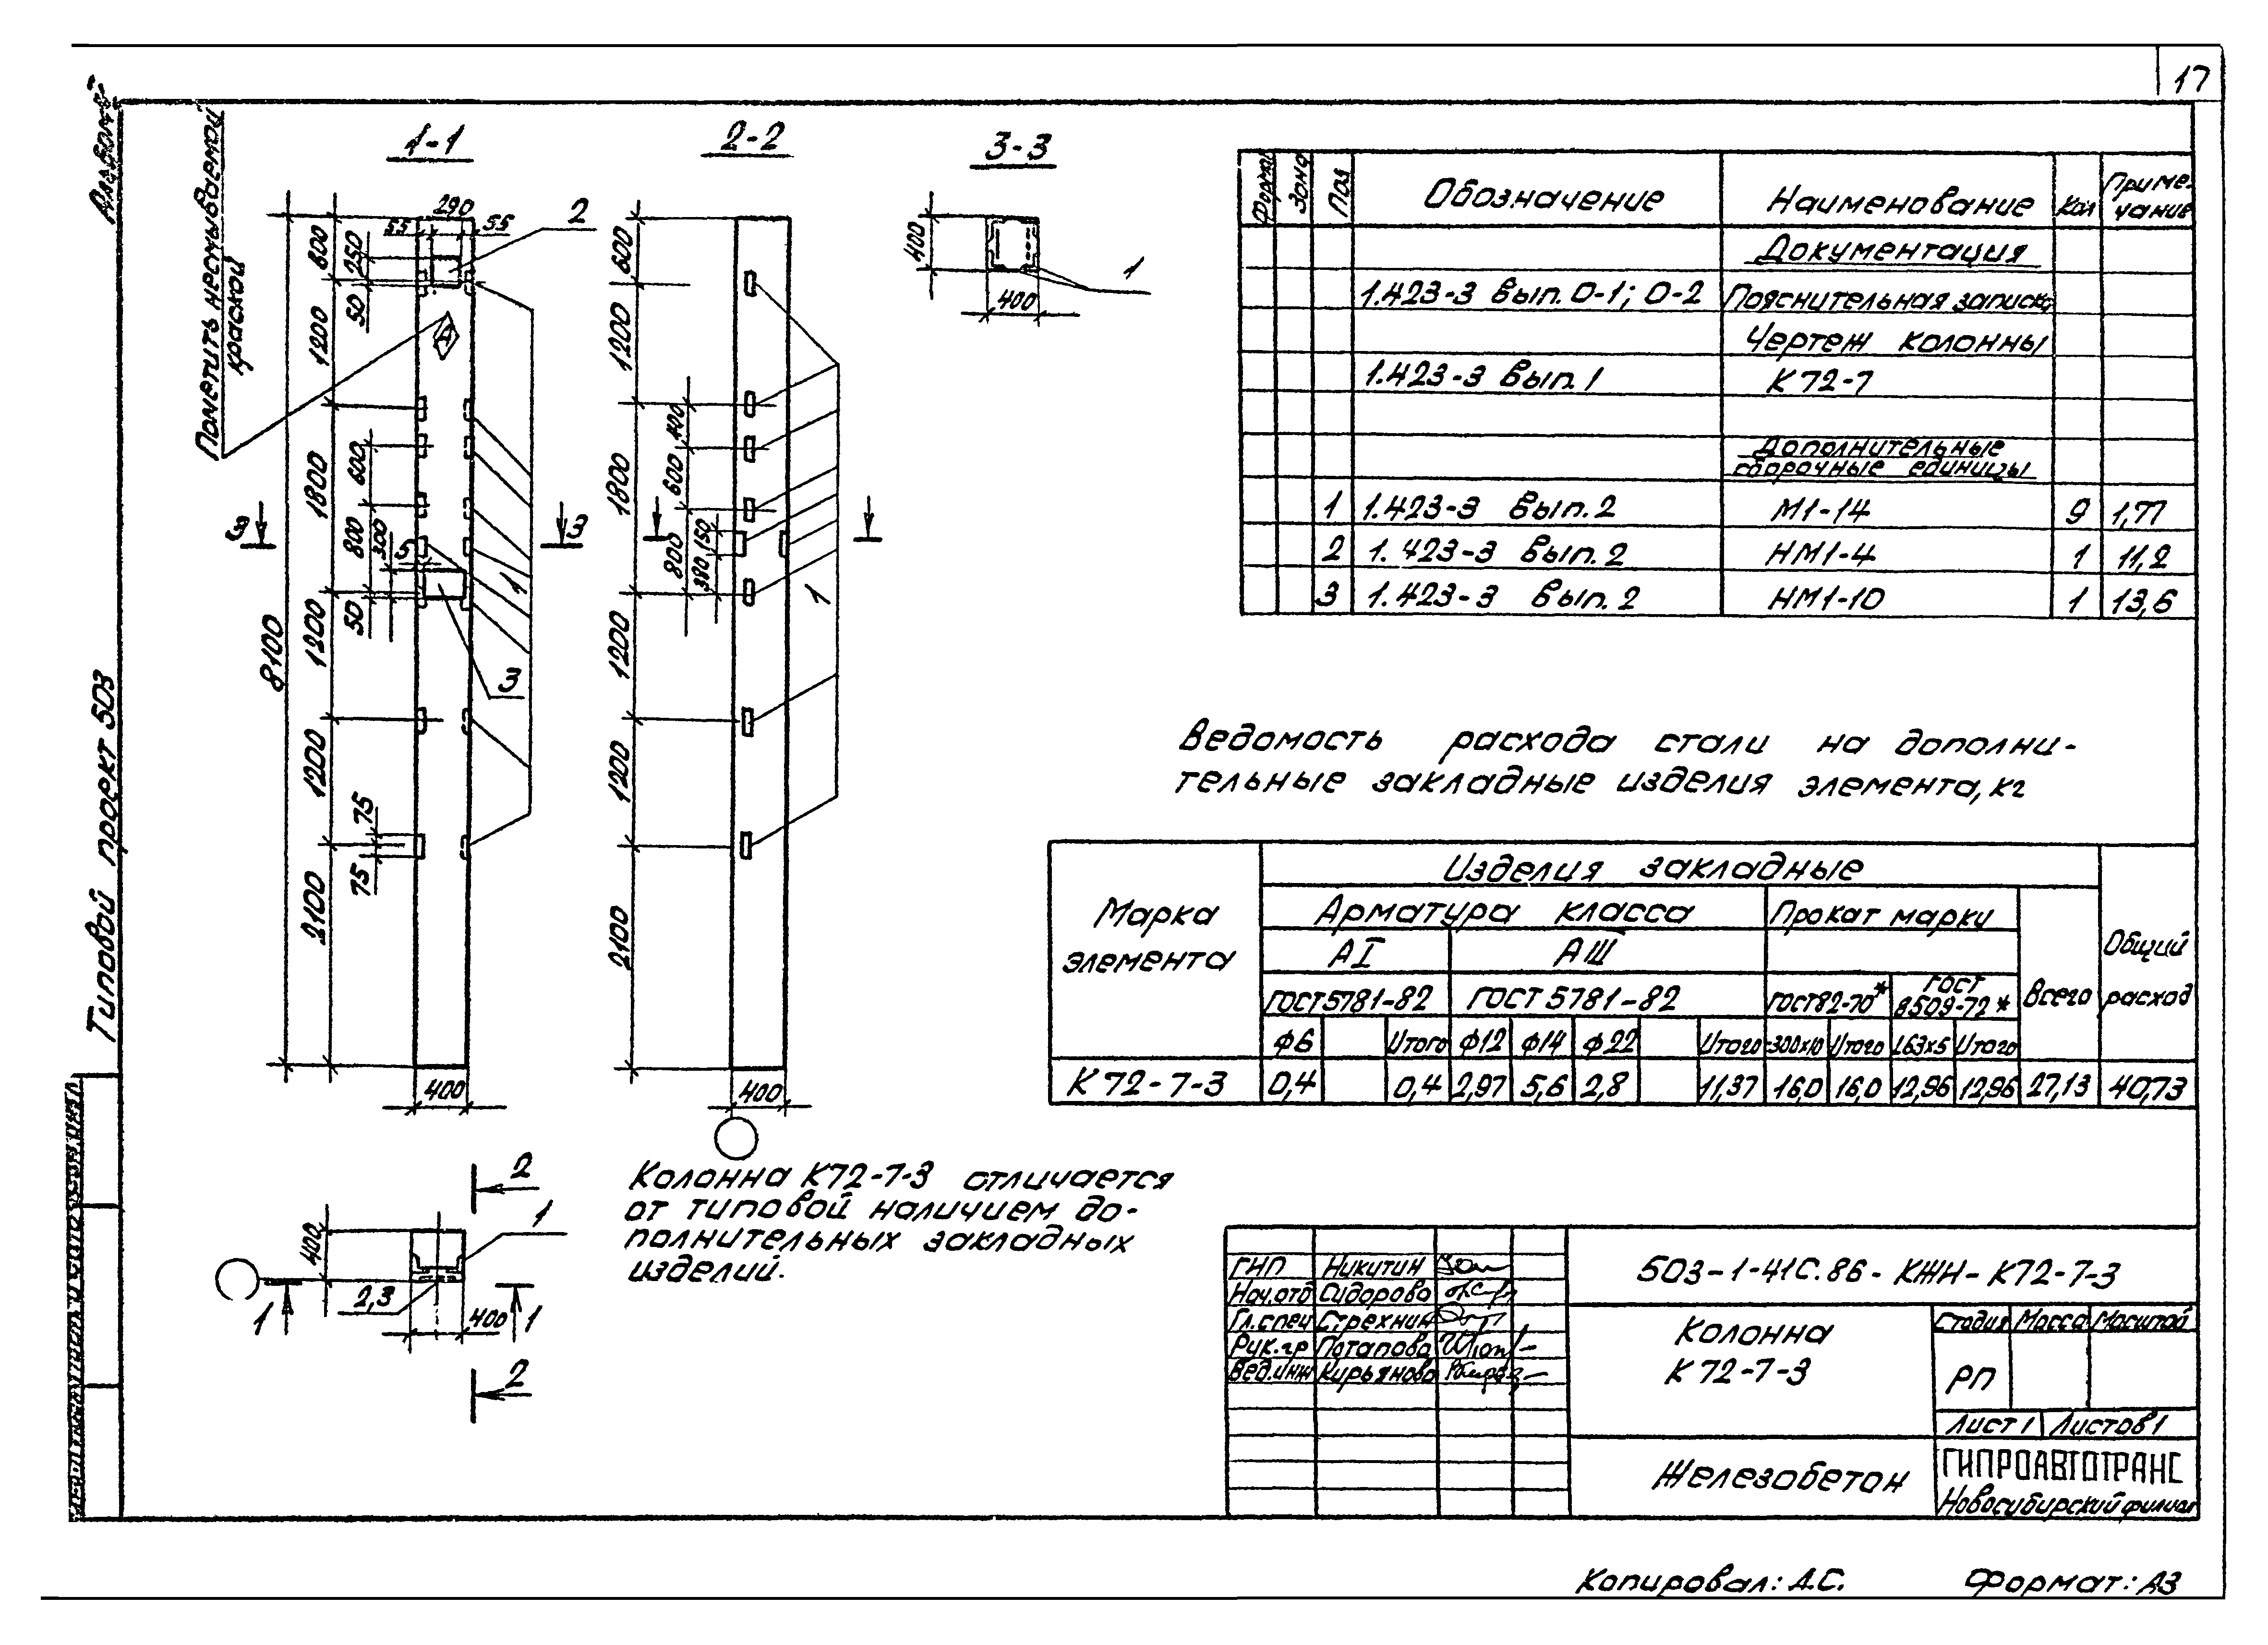 17
Альбом
Типовой проект 503
Пометить несмываемой
краской
1-1
2-2
3-3
290
55
55
2
600
250
50
1200
А
1800
600
800
300
5
50
3
3
1
3
8100
1200
1200
75
75
2100
400
600
1200
400
600
1800
800
150
380
1
1200
1200
2100
400
400
400
1
2
1
400
2,3
400
1
1
2
Формат Зона Поз Обозначение Наименование Кол Приме-
чание
Документация
1.423-3 вып. 0-1; 0-2 Пояснительная записка
Чертеж колонны
1.423-3 вып. 1 К 72-7
Дополнительные
сборочные единицы
1 1.423-3 вып. 2 М1-14 9 1,77
2 1.423-3 вып. 2 НМ1-4 1 11,2
3 1.423-3 вып. 2 НМ1-10 1 13,6
Ведомость расхода стали на дополни-
тельные закладные изделия элемента, кг
Марка
элемента
Изделия закладные
Арматура класса Прокат марки
АI АIII
ГОСТ 5781-82 ГОСТ 5781-82 ГОСТ 82-70* ГОСТ
8509-72*
Всего
Общий
расход
ф6 Итого ф12 ф14 ф22 Итого -300х10 Итого L63х5 Итого
К 72-7-3 0,4 0,4 2,97 5,6 2,8 11,37 16,0 16,0 12,96 12,96 27,13 40,73
Колонна К72-7-3 отличается
от типовой наличием до-
полнительных закладных
изделий.
ГИП Никитин
Нач.отд Сидорова
Гл.спец Стрехнин
Рук.гр Потапова
Вед.инж Кирьянова
503-1-41С.86-КЖН-К72-7-3
Колонна
К 72-7-3
Стадия Масса Масштаб
РП
Лист 1 Листов 1
Железобетон
ГИПРОАВТОТРАНС
Новосибирский филиал
Копировал: А.С. Формат: А3